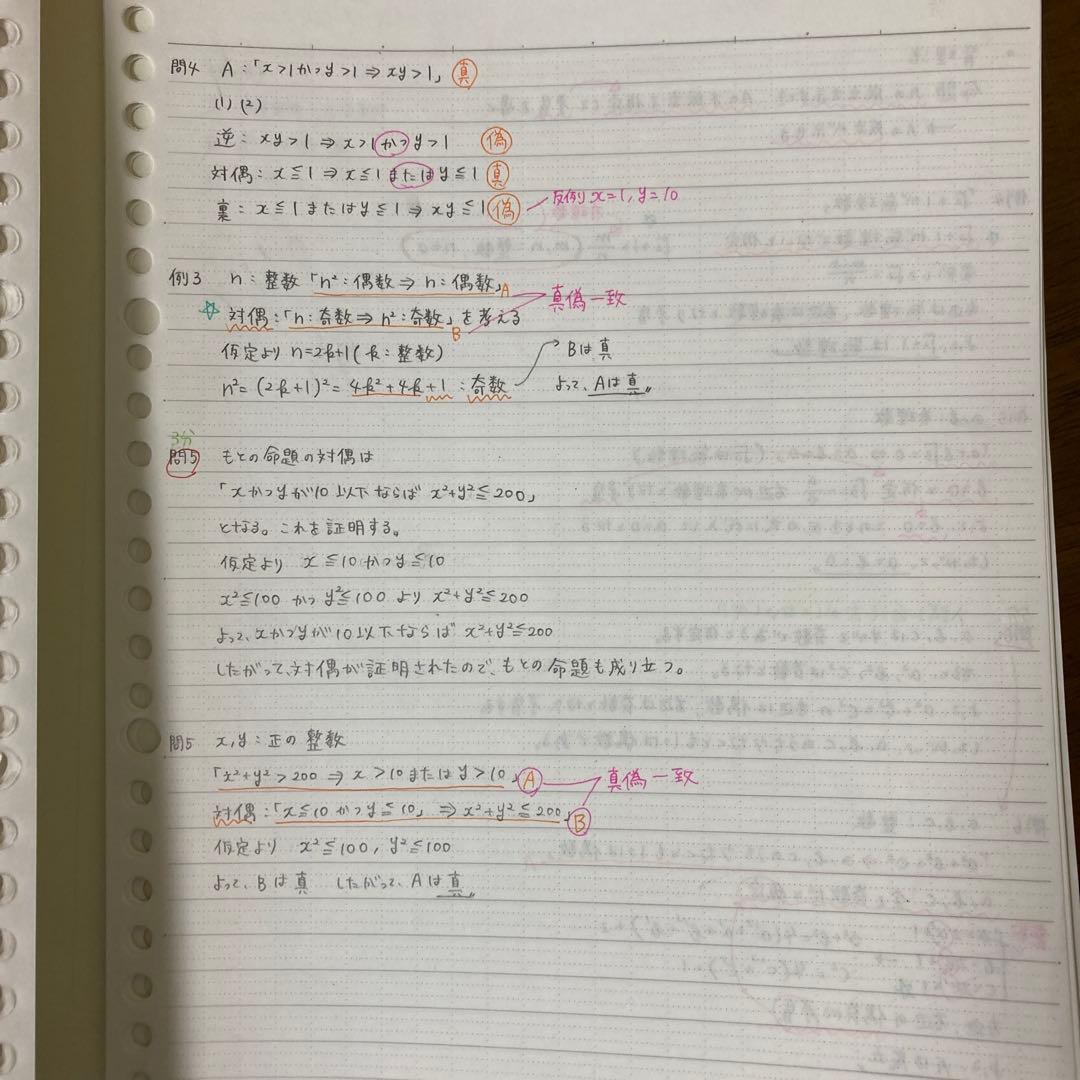 問4 A:「x>1かつy>1⇒xy>1」真
(1)(2)
逆:xy>1⇒x>1かつy>1 偽
対偶:x≦1⇒x≦1またはy≦1 真
裏:x≦1またはy≦1⇒xy≦1 偽 反例x=1,y=10
例3 n:整数「n²:偶数⇒n:偶数」A
真偽一致
☆対偶:「n:奇数⇒n²:奇数」を考える
B
仮定より n=2k+1(k:整数)
Bは真
n²=(2k+1)²=4k²+4k+1:奇数
よって、Aは真〃
3分
問5 もとの命題の対偶は
「xかつyが10以下ならばx²+y²≦200」
となる。これを証明する。
仮定より x≦10かつy≦10
x²≦100 かつ y²≦100 より x²+y²≦200
よって、xかつyが10以下ならばx²+y²≦200
したがって、対偶が証明されたので、もとの命題も成り立つ。
問5 x,y:正の整数
「x²+y²>200⇒x>10またはy>10」A 真偽一致
対偶:「x≦10かつy≦10」⇒x²+y²≦200」B
仮定より x²≦100,y²≦100
よって、Bは真 したがって、Aは真〃